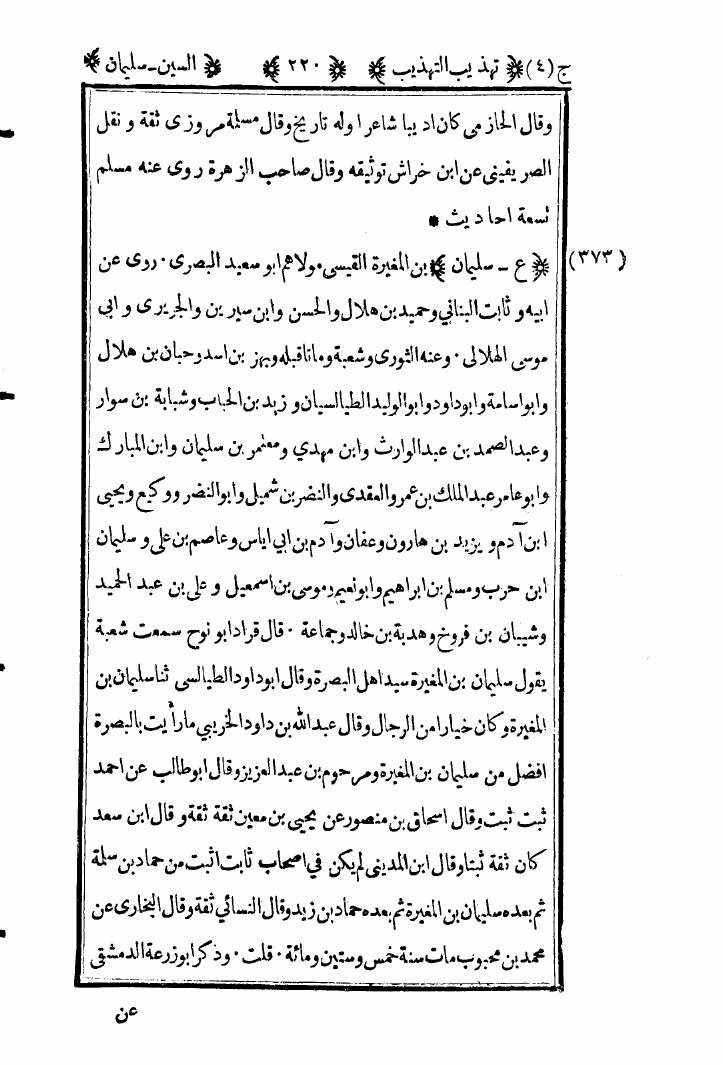 ج(٤) ﴿ تهذيب التهذيب ﴾ ﴿ ٢٢٠ ﴾ ﴿ السين-سليمان ﴾
وقال الحازمي كان اديبا شاعرا وله تاريخ وقال مسلمة مروزى ثقة و نقل
الصريفينى عن ابن خراش توثيقه وقال صاحب الزهرة روى عنه مسلم
تسعة احاديث *
(٣٧٣) ﴿ ع - سليمان ﴾ بن المغيرة القيسى مولاهم ابو سعيد البصرى . روى عن
ابيه و ثابت البناني وحميد بن هلال والحسن وابن سيرين والجريرى و ابى
موسى الهلالى . وعنه الثورى وشعبة وماتا قبله وبهز بن اسد وحبان بن هلال
وابو اسامة وابو داود وابو الوليد الطيالسيان و زيد بن الحباب وشبابة بن سوار
وعبد الصمد بن عبد الوارث وابن مهدي ومعتمر بن سليمان وابن المبارك
وابو عامر عبد الملك بن عمرو العقدى والنضر بن شميل وابو النضر ووكيع ويحيى
ابن آدم و يزيد بن هارون وعفان وآدم بن ابي اياس وعاصم بن على و سليمان
ابن حرب ومسلم بن ابراهيم وابو نعيم وموسى بن اسمعيل و على بن عبد الحميد
وشيبان بن فروخ وهدبة بن خالد وجماعة . قال قراد ابو نوح سمعت شعبة
يقول سليمان بن المغيرة سيد اهل البصرة وقال ابو داود الطيالسى ثنا سليمان بن
المغيرة وكان خيارا من الرجال وقال عبد الله بن داود الخريبي ما رأيت بالبصرة
افضل من سليمان بن المغيرة ومرحوم بن عبد العزيز وقال ابو طالب عن احمد
ثبت ثبت وقال اسحاق بن منصور عن يحيى بن معين ثقة ثقة و قال ابن سعد
كان ثقة ثبتا وقال ابن المدينى لم يكن في اصحاب ثابت اثبت من حماد بن سلمة
ثم بعده سليمان بن المغيرة ثم بعده حماد بن زيد وقال النسائي ثقة وقال البخارى عن
محمد بن محبوب مات سنة خمس وستين ومائة . قلت . وذكر ابو زرعة الدمشقى
عن